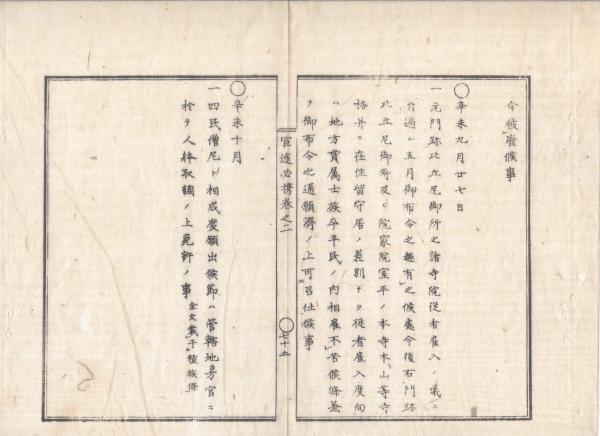 今被廃候事
〇辛未九月廿七日
一元門跡比丘尼御所之諸寺院従者雇入ノ儀ニ
付過ル五月御布令之趣有之候處今後右門跡
比丘尼御所及ヒ院家院室平ノ本寺本山等寺
格并ニ在住留守居ノ差別ナク従者雇入度向
ハ地方貫属士族卒平民ノ内相雇不苦候條兼
テ御布令之通願済ノ上可召仕候事
官途必携巻之二
〇七十五
〇辛未十月
一四民僧尼ト相成度願出候節ハ管轄地方官ニ
於テ人体取調ノ上免許ノ事 全文載于種族條